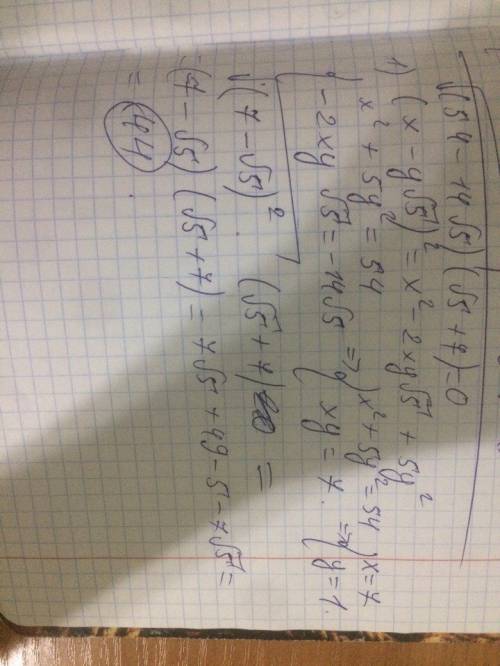 √(54 - 14√5) (√5 + 7) = 0
1) (x - y√5)² = x² - 2xy√5 + 5y²
{ x² + 5y² = 54
-2xy √5 = -14√5 => { x² + 5y² = 54
xy = 7. => { x = 7
y = 1.
√(7 - √5)² · (√5 + 7) =
= (7 - √5) (√5 + 7) = 7√5 + 49 - 5 - 7√5 =
= 44